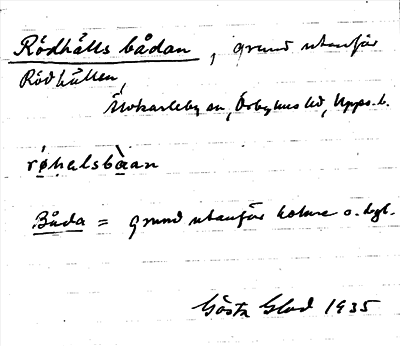 Rödhälls bådan, grund utanför
Rödhällen,
Älvkarleby sn, Örbyhus hd, Upps. l.
røhalsbàan
Båda = grund utanför holme o. dyl.
Gösta Glad 1935